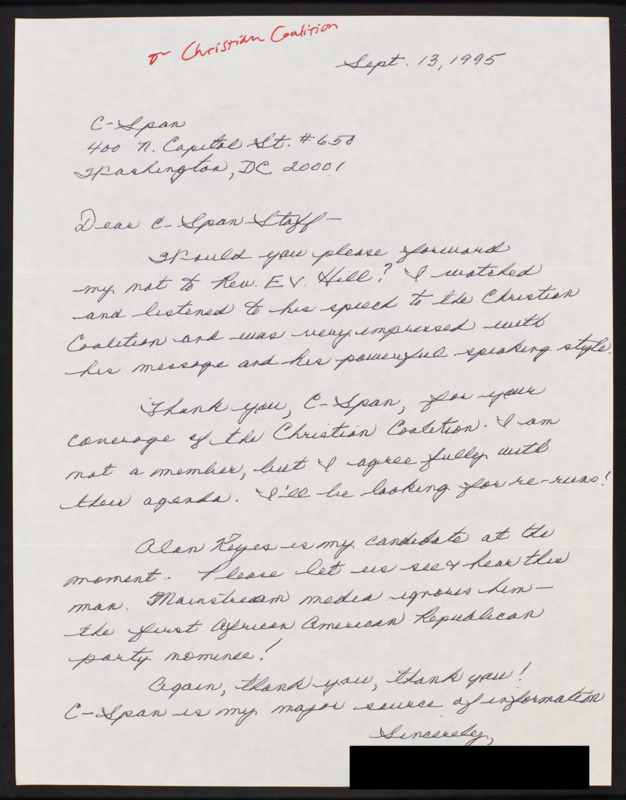 or Christian Coalition
Sept. 13, 1995
C-Span
400 N. Capitol St. #650
Washington, DC 20001
Dear C-Span Staff-
Would you please forward
my not to Rev. E V. Hill? I watched
and listened to his speech to the Christian
Coalition and was very impressed with
his message and his powerful speaking style.
Thank you, C-Span, for your
coverage of the Christian Coalition. I am
not a member, but I agree fully with
their agenda. I'll be looking for re-runs!
Alan Keyes is my candidate at the
moment. Please let us see & hear this
man. Mainstream media ignores him-
the first African American Republican
party nominee!
Again, thank you, thank you!
C-Span is my major source of information
Sincerely,